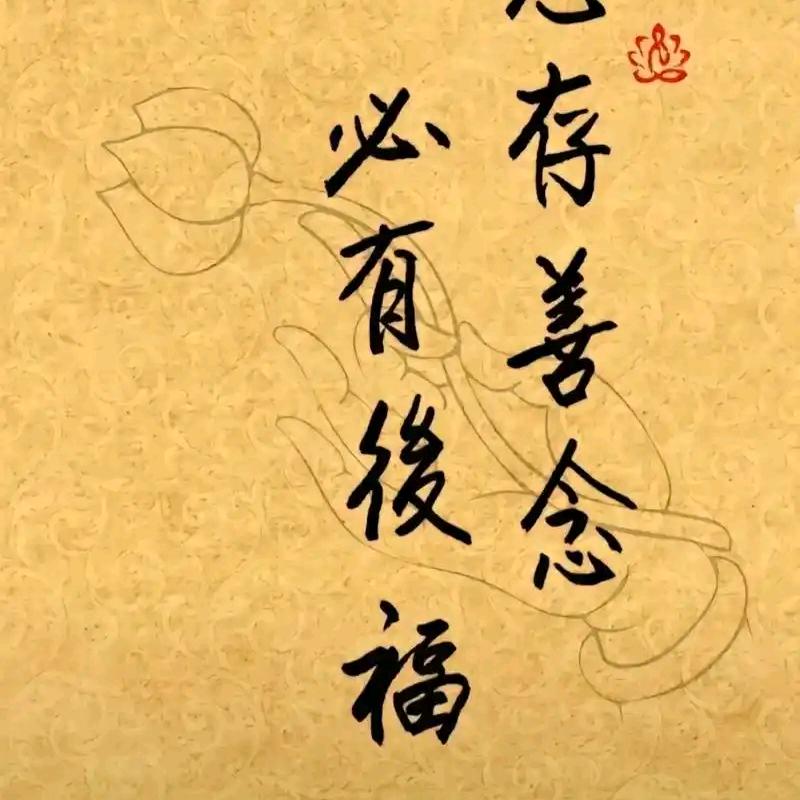 存善念
必有後福